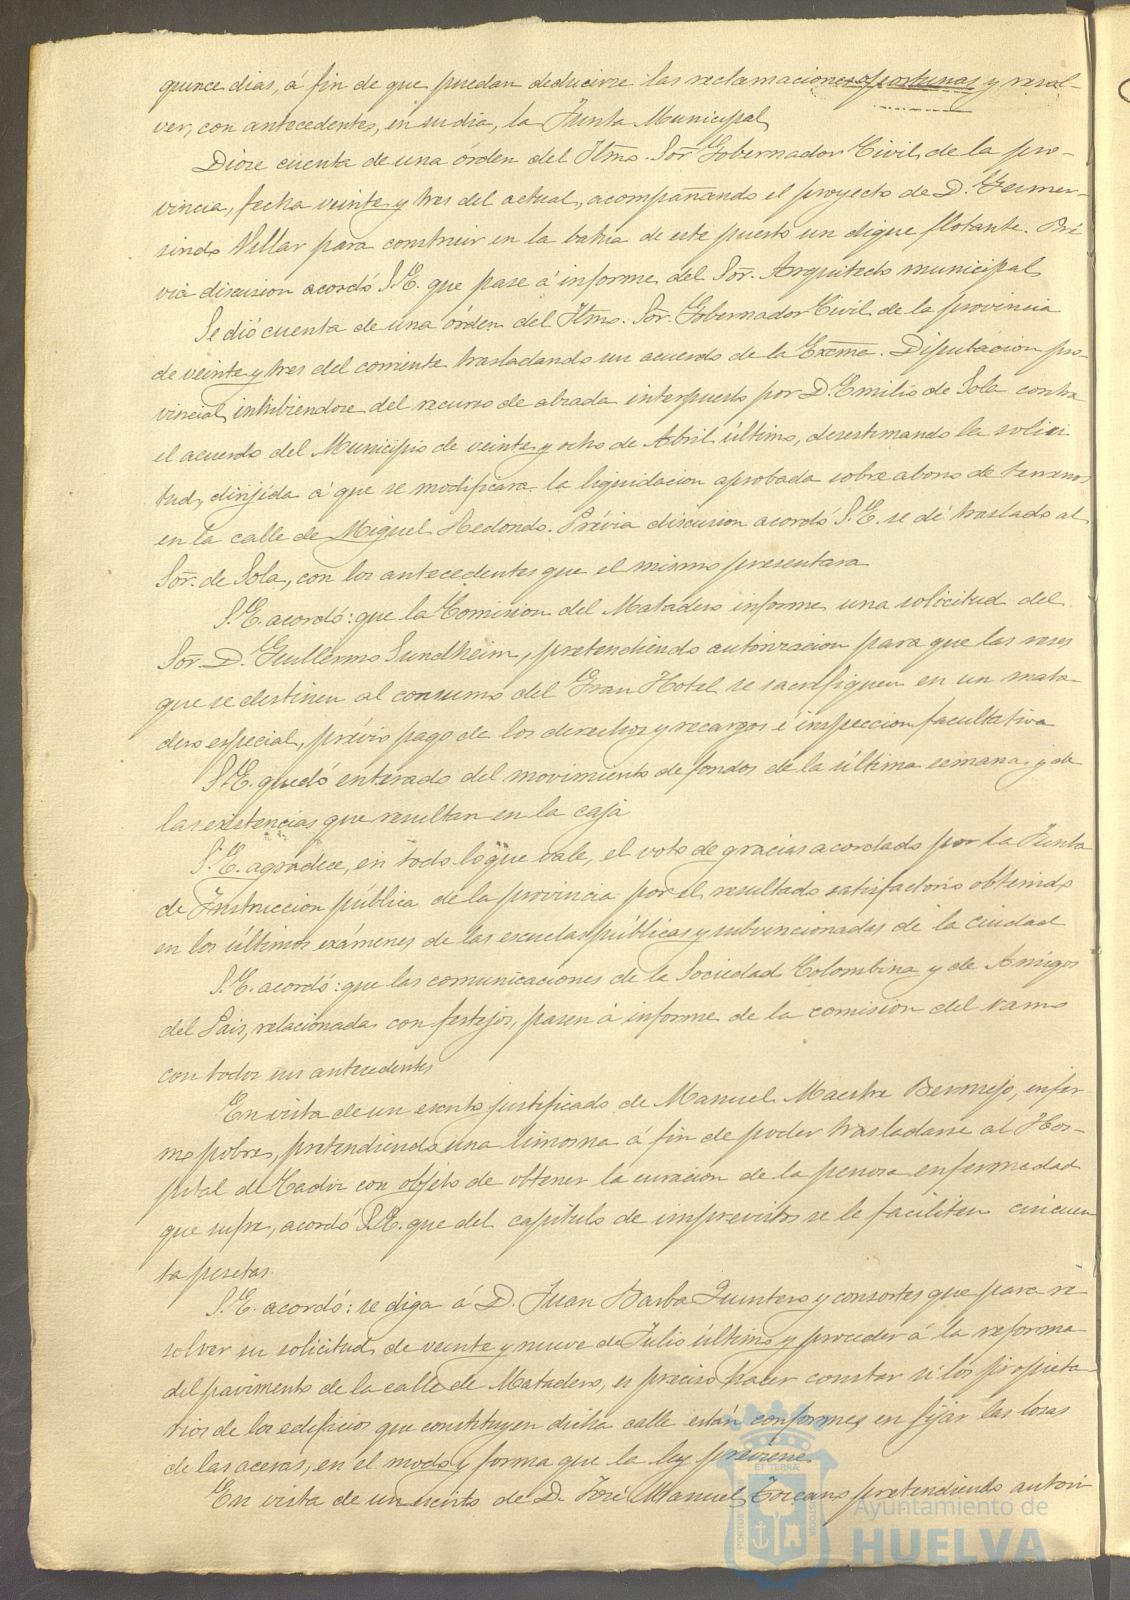 quince dias, á fin de que puedan deducirse las reclamaciones oportunas y resol-
ver, con antecedentes, en su dia, la Junta Municipal
Dióse cuenta de una órden del Iltmo. Sor. Gobernador Civil de la pro-
vincia, fecha veinte y tres del actual, acompañando el proyecto de D. Gumer-
sindo Villar para construir en la bahia de este puerto un dique flotante. Pré
via discusion acordó S.E. que pase á informe del Sor. Arquitecto municipal
Se dió cuenta de una órden del Iltmo. Sor. Gobernador Civil de la provincia
de veinte y tres del corriente trasladando un acuerdo de la Excma. Diputacion pro-
vincial, inhibiendose del recurso de alzada interpuesto por D. Emilio de Sola contra
el acuerdo del Municipio de veinte y ocho de Abril último, desestimando la solici
tud, dirijida á que se modificara la liquidacion aprobada sobre abono de terrenos
en la calle de Miguel Redondo. Prévia discusion acordó S.E. se dé traslado al
Sor. de Sola, con los antecedentes que el mismo presentara
S.E. acordó: que la Comision del Matadero informe una solicitud del
Sor. D. Guillermo Sundheim, pretendiendo autorizacion para que las reses
que se destinen al consumo del Gran Hotel se sacrifiquen en un mata-
dero especial, prévio pago de los derechos y recargos é inspeccion facultativa
S.E. quedó enterado del movimiento de fondos de la última semana y de
las existencias que resultan en la caja
S.E. agradece, en todo lo que vale, el voto de gracias acordado por la Junta
de Instruccion pública de la provincia por el resultado satisfactorio obtenido
en los últimos exámenes de las escuelas públicas y subvencionadas de la ciudad
S.E. acordó: que las comunicaciones de la Sociedad Colombina y de Amigos
del Pais, relacionadas con festejos, pasen á informe de la comision del ramo
con todos sus antecedentes
En vista de un escrito justificado de Manuel Maestre Bermejo, enfer
mo pobre, pretendiendo una limosna á fin de poder trasladarse al Hos-
pital de Cadiz con objeto de obtener la curacion de la penosa enfermedad
que sufre, acordó S.E. que del capítulo de imprevistos se le faciliten cincuen
ta pesetas.
S.E. acordó: se diga á D. Juan Barba Quintero y consortes que para re
solver su solicitud de veinte y nueve de Julio último y proceder á la reforma
del pavimento de la calle de Matadero, es preciso hacer constar si los propieta
rios de los edificios que constituyen dicha calle están conformes en fijar las losas
de las aceras, en el modo y forma que la ley previene.
En vista de un escrito de D. José Manuel Toscano pretendiendo autori
Ayuntamiento de
HUELVA